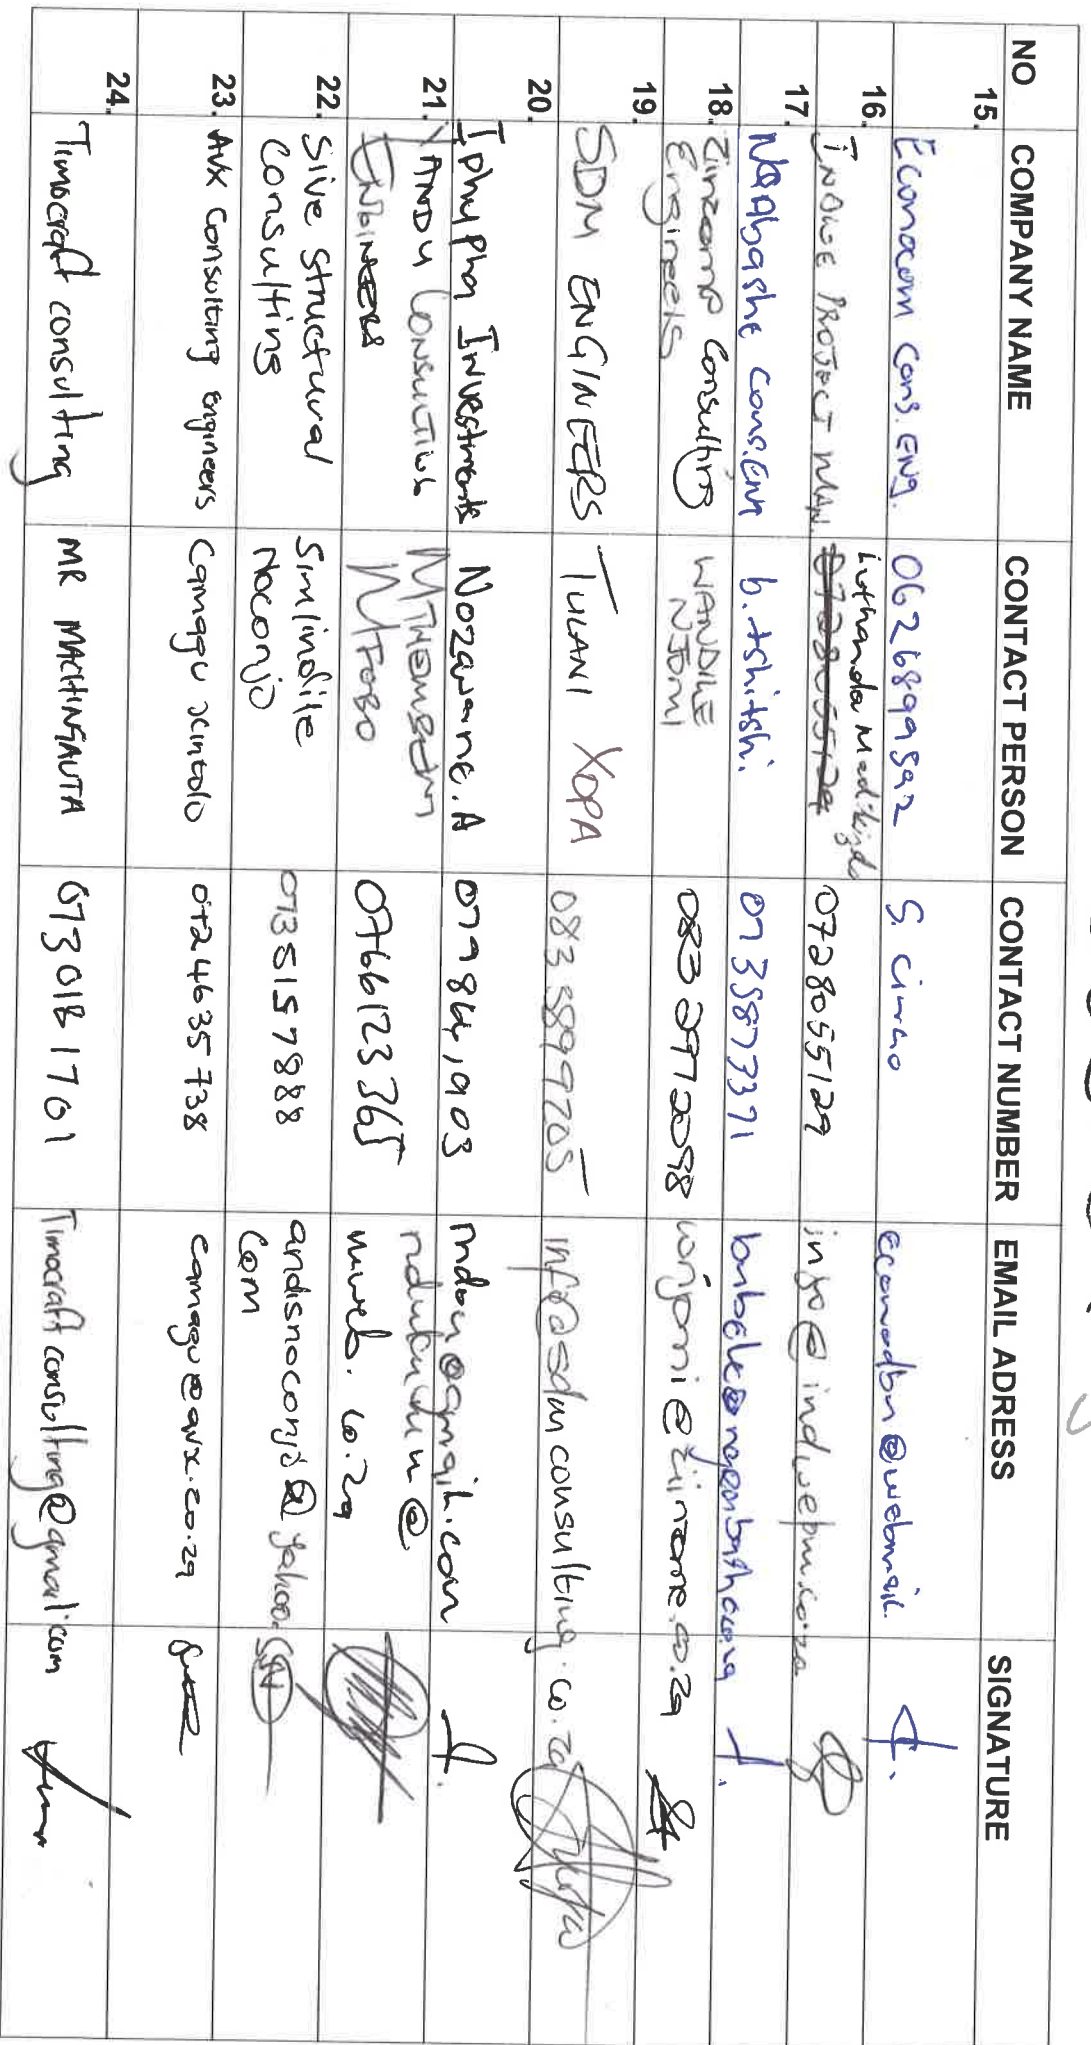 NO COMPANY NAME CONTACT PERSON CONTACT NUMBER EMAIL ADRESS SIGNATURE
15. Econocom Cons. Eng. 0626899892 S.
16. INDWE PROJECT MAN. Luthando Madikizela 0728055129 info@indwepm.co.za
17. Cons. Eng b.tshitshi. 0735873371
18. Zimzame Consulting
Engineers WANDILE
NJOMI 083 297 2098
19. SDM ENGINEERS TULANI XOPA 083 3899705 info@sdmconsulting.co.za
20. Iphupha Investments Nozawane.A
21. YANDU CONSULTING
ENGINEERS MTHOMBENI
MTOBO 0766123365 mweb.co.za
22. Sive Structural
Consulting Simlindile
Noconjo 0735157888 andisnoconjo@yahoo.
com
23. AVX Consulting engineers Camagu Xintolo 0724635738 camagu@avx.co.za
24. Timocraft consulting MR MACHINGAUTA 073018 1701 Timocraftconsulting@gmail.com